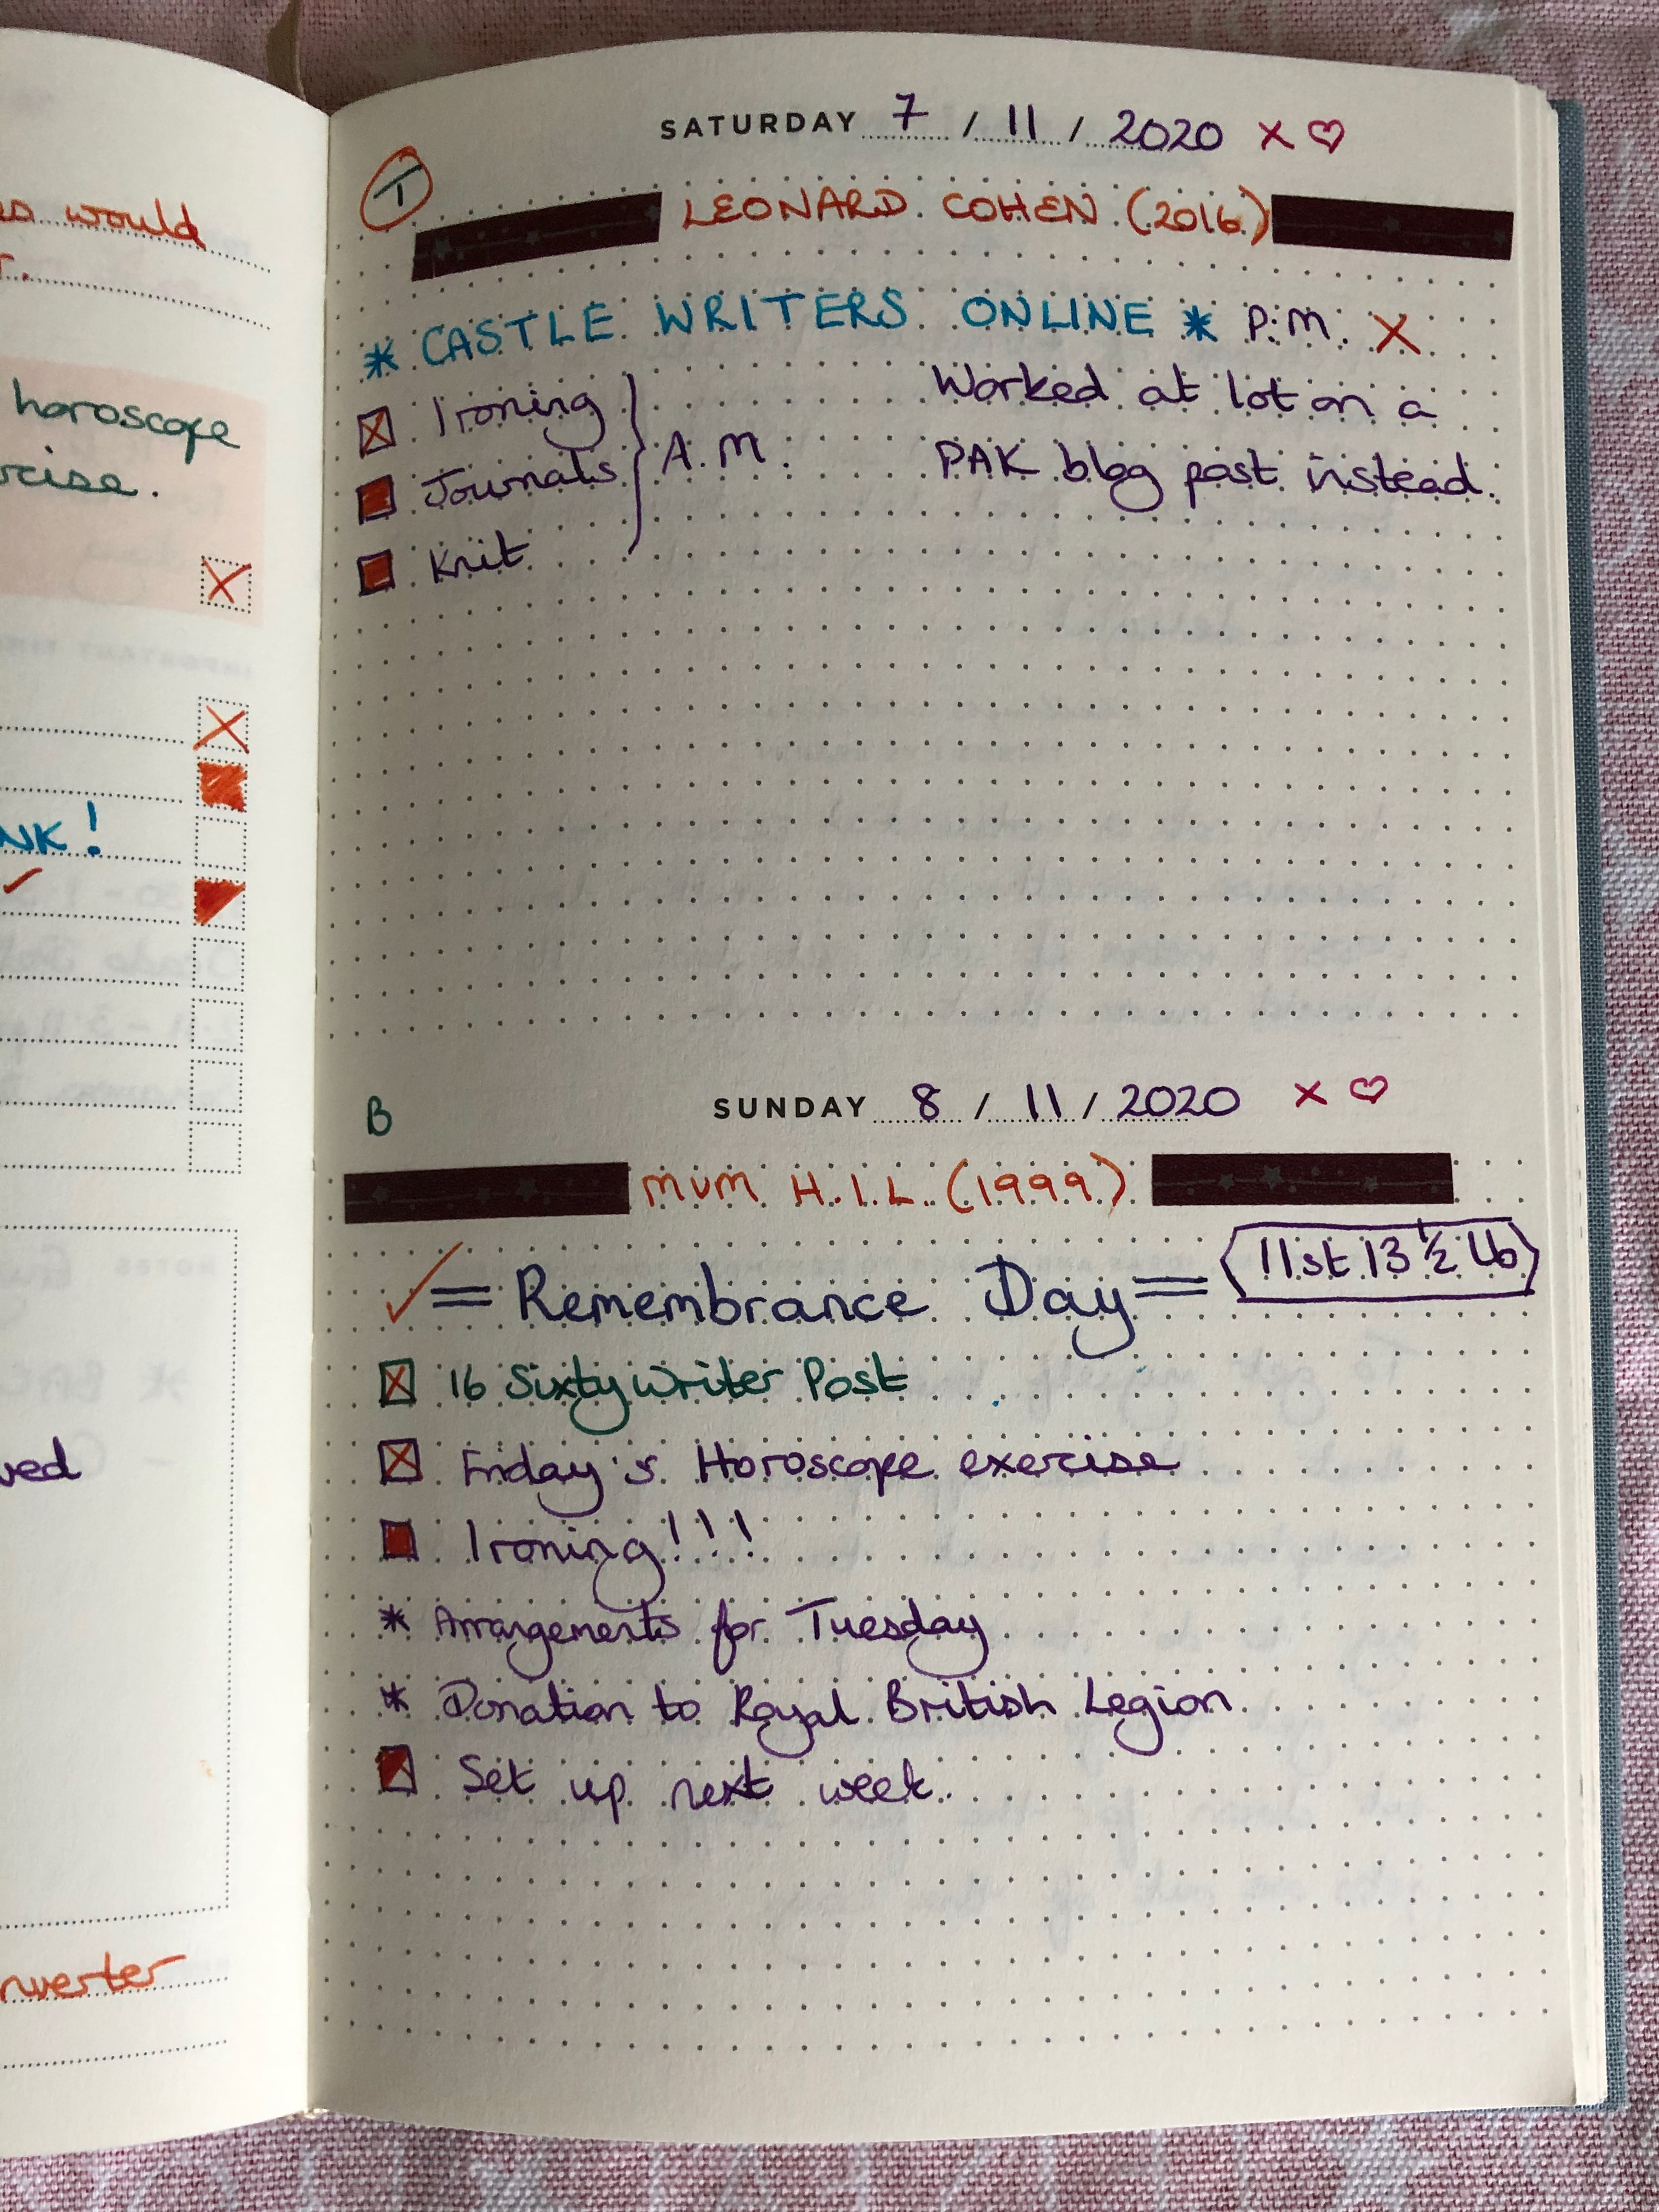 would
horoscope
NK!
SATURDAY 7 / 11 / 2020 x ♡
T
LEONARD COHEN (2016)
* CASTLE WRITERS ONLINE * P.M. X
Ironing
Journals
Knit
A.M.
Worked at lot on a
PAK blog post instead.
B
SUNDAY 8 / 11 / 2020 x ♡
MUM H.I.L. (1999)
✓ = Remembrance Day =
11st 13 ½ lb
16 Sixty Writer Post
Friday's Horoscope exercise
Ironing!!!
* Arrangements for Tuesday
* Donation to Royal British Legion
Set up next week.